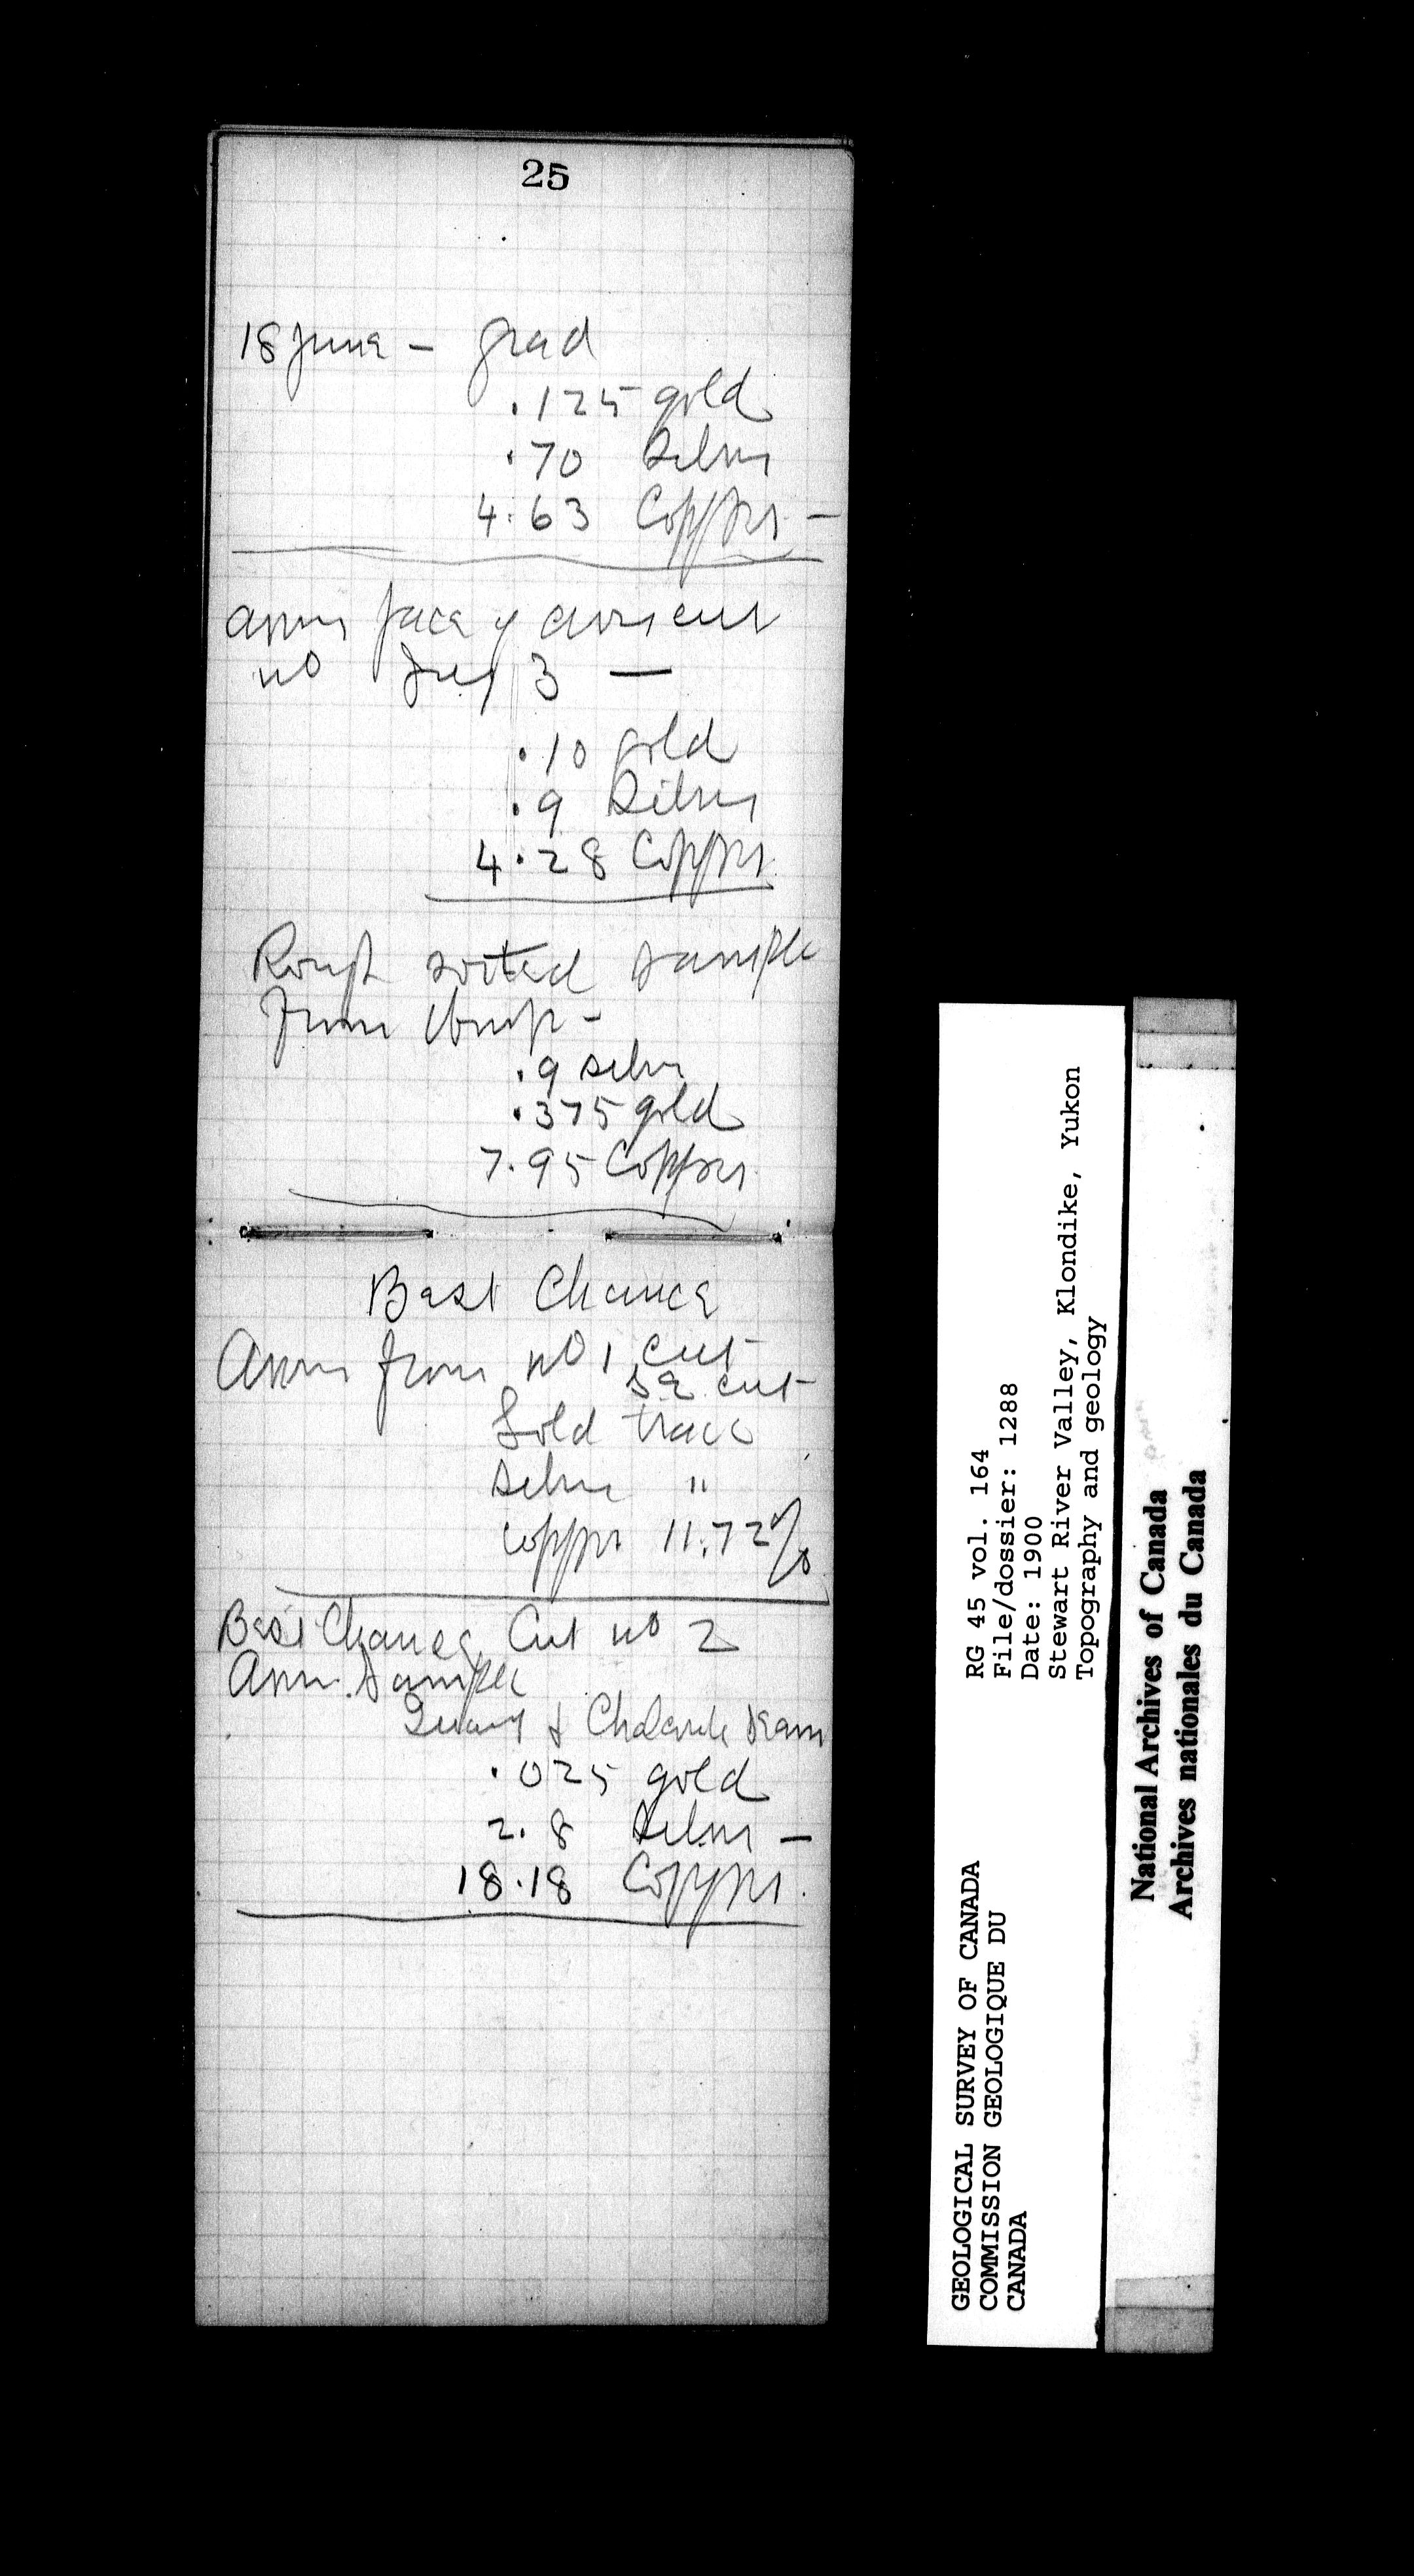 25
18 June - grad
.125 gold
.70 Silver
4.63 Copper -
Assay face of crosscut
no 3 —
.10 gold
.9 Silver
4.28 Copper
Rough sorted sample
from dump -
.9 silver
.375 gold
7.95 Copper
Best Chance
Assay from no 1 cut
cut
Gold trace
Silver "
copper 11.72%
Best Chance Cut no 2
Assay Sample
Quartz & seam
.025 gold
2.8 Silver -
18.18 Copper
GEOLOGICAL SURVEY OF CANADA
COMMISSION GEOLOGIQUE DU
CANADA
RG 45 vol. 164
File/dossier: 1288
Date: 1900
Stewart River Valley, Klondike, Yukon
Topography and geology
National Archives of Canada
Archives nationales du Canada